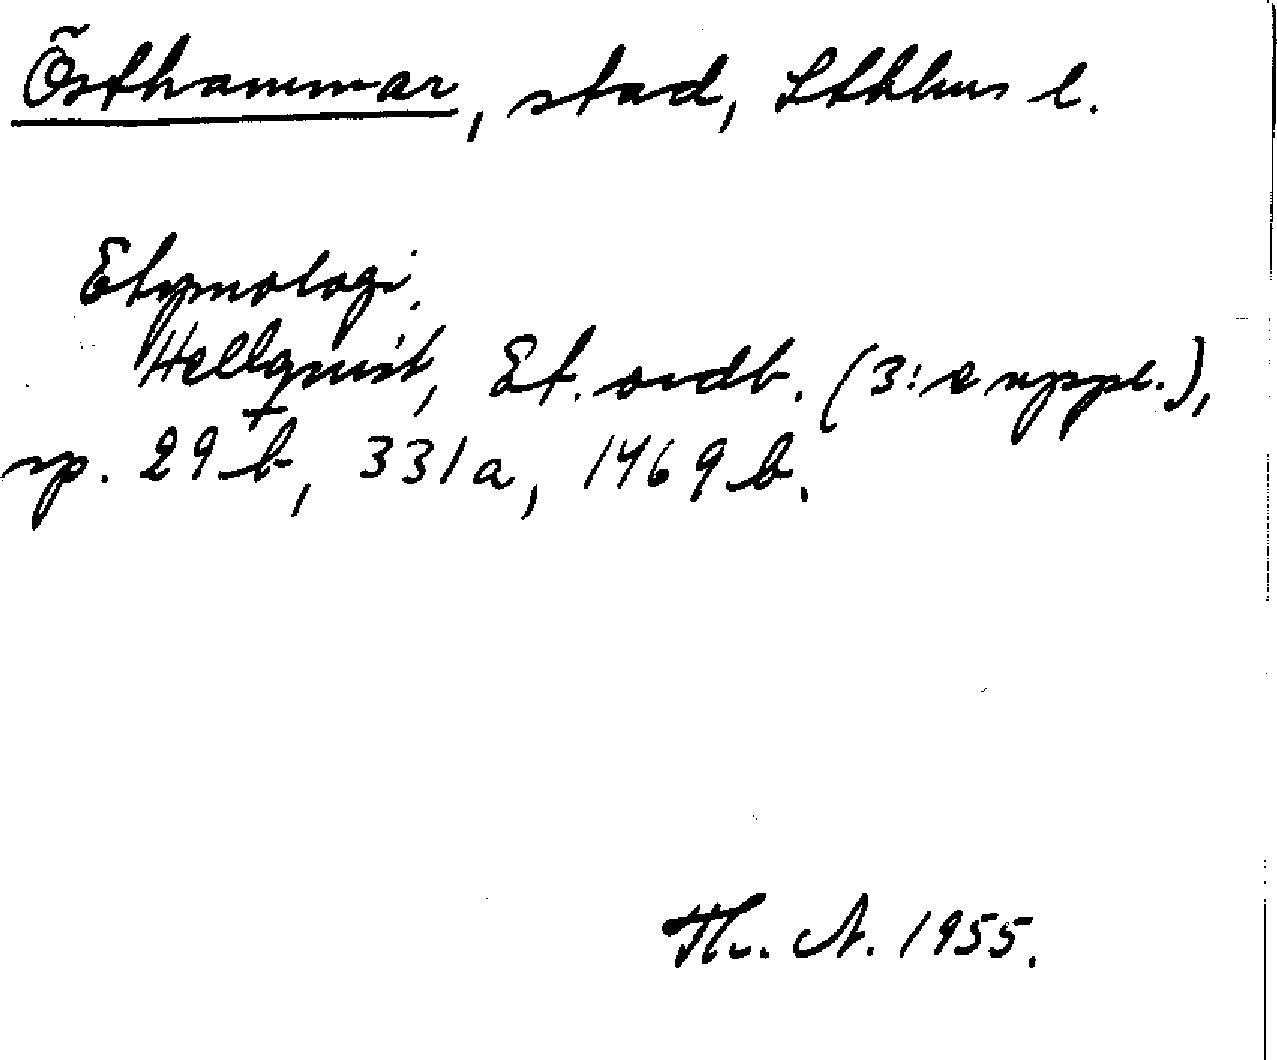 Östhammar, stad, Stkhlms l.
Etymologi.
Hellquist, Et. ordb. (3:e uppl.),
sp. 29 b, 331 a, 1469 b.
Th. A. 1955.